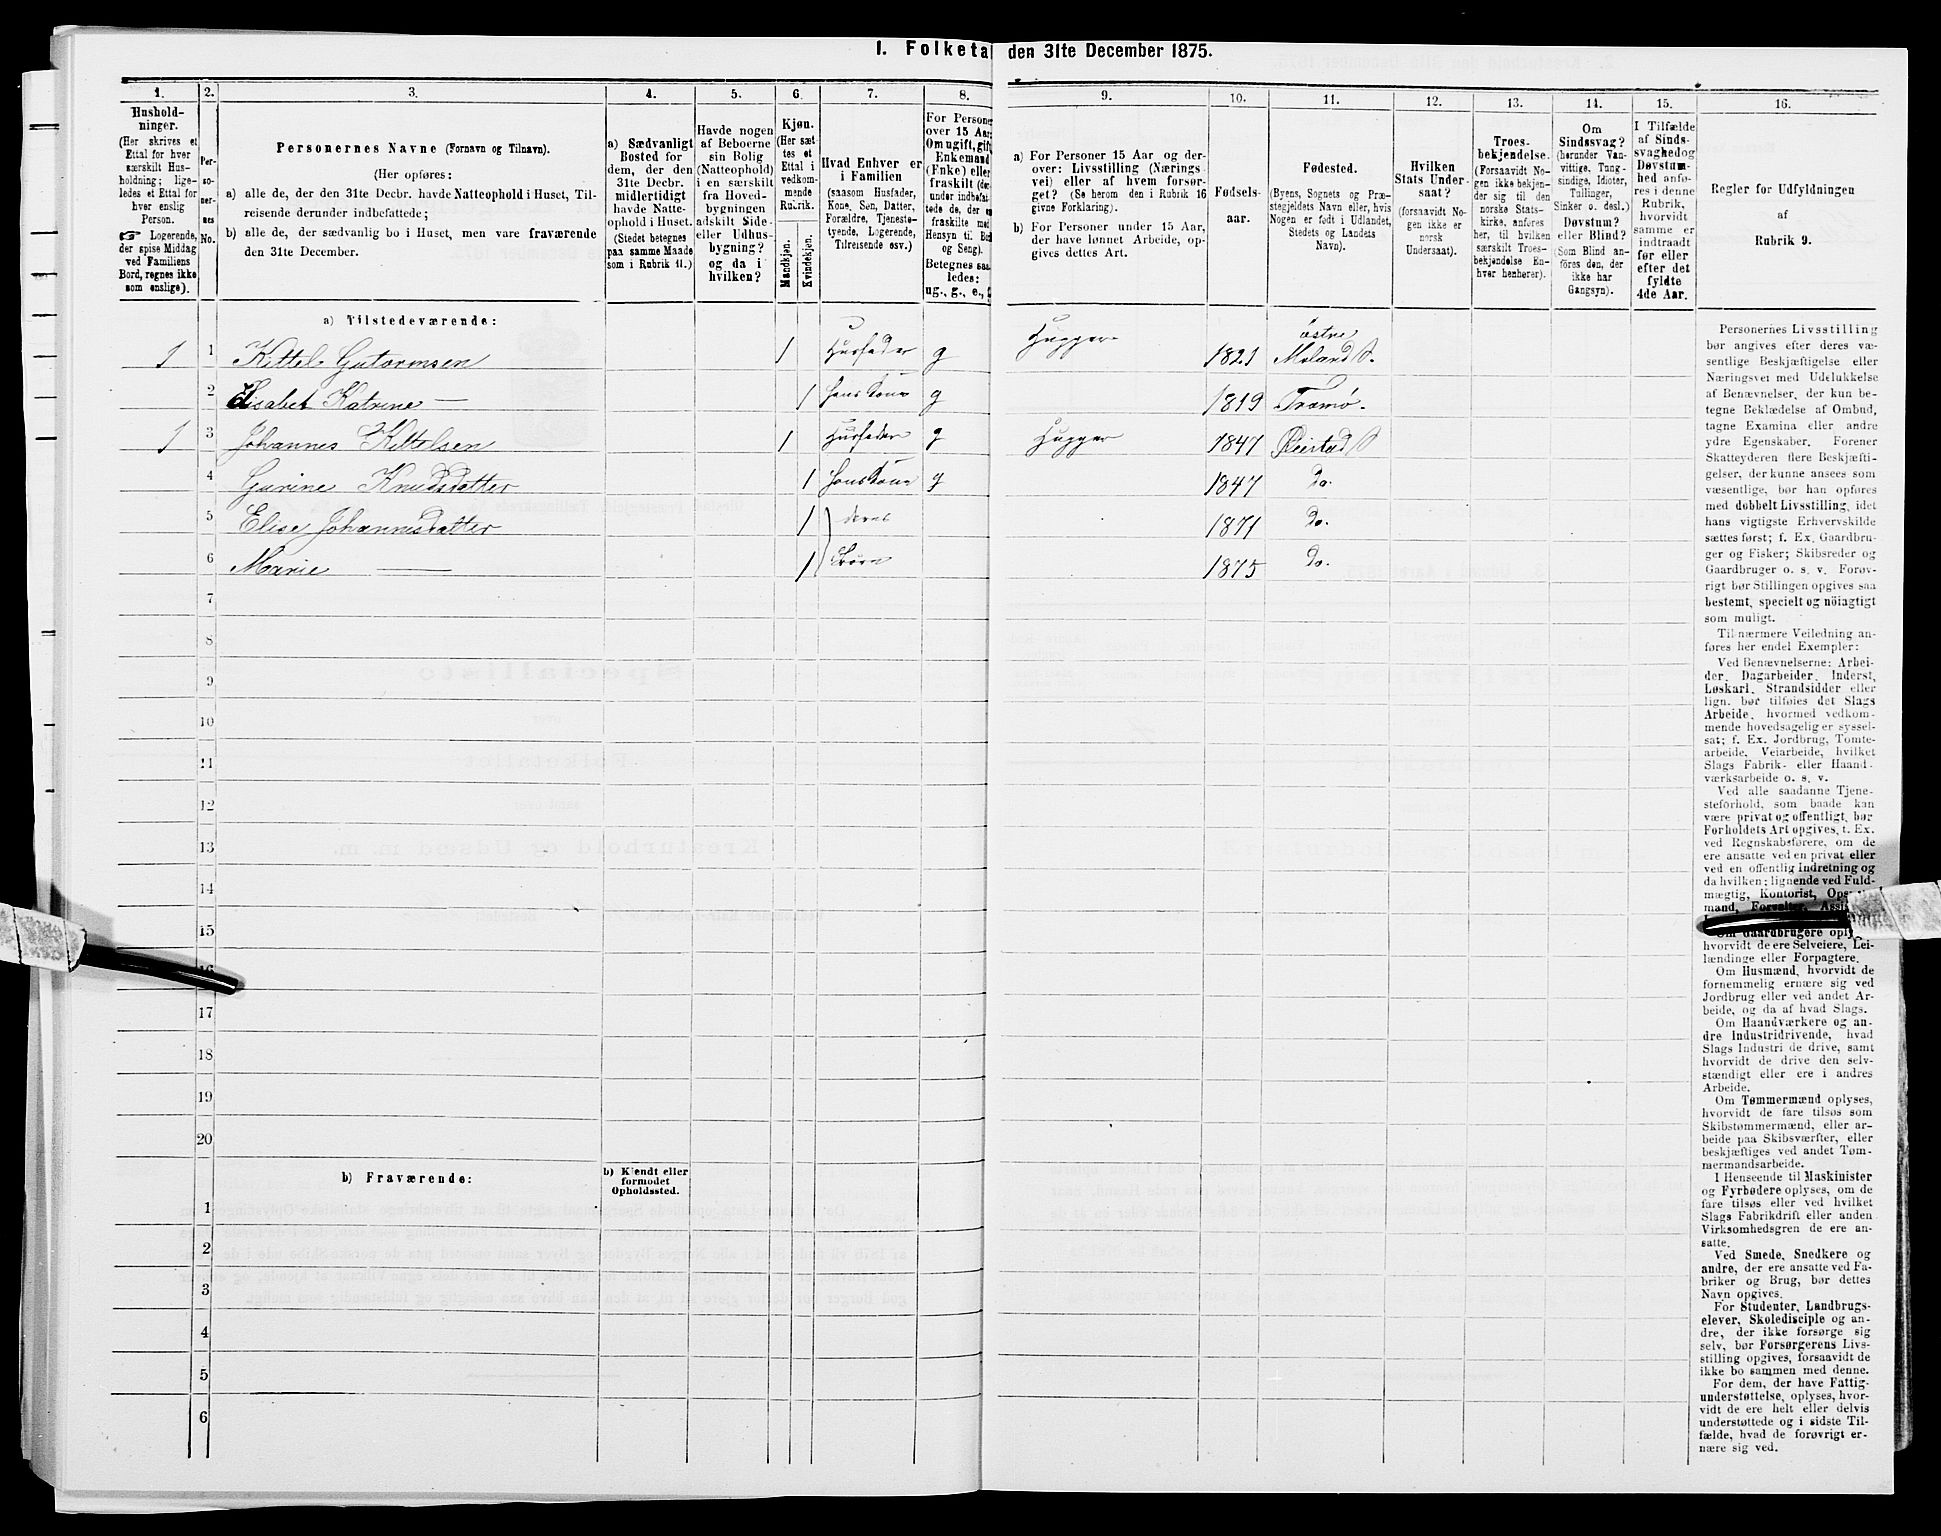 I. Folketal den 31te December 1875.
1. 2. 3. 4. 5. 6. 7. 8. 9. 10. 11. 12. 13. 14. 15. 16.
Hushold-
ninger.
(Her skrives et
Ettal for hver
særskilt Hus-
holdning; lige-
ledes et Ettal for
hver enslig
Person.
☞ Logerende,
der spise Middag
ved Familiens
Bord, regnes ikke
som enslige).
Per-
so-
ner-
nes
No.
Personernes Navne (Fornavn og Tilnavn).
(Her opføres:
a) alle de, der den 31te Decbr. havde Natteophold i Huset, Til-
reisende derunder indbefattede;
b) alle de, der sædvanlig bo i Huset, men vare fraværende
den 31te December.
a) Sædvanligt
Bosted for
dem, der den
31te Decbr.
midlertidigt
havde Natte-
ophold i Huset.
(Stedet betegnes
paa samme Maade
som i Rubrik 11.)
Havde nogen
af Beboerne
sin Bolig
(Natteophold)
i en særskilt
fra Hoved-
bygningen
adskilt Side-
eller Udhus-
bygning?
og da i
hvilken?
Kjøn.
(Her sæt-
tes et
Ettal i
vedkom-
mende
Rubrik.
Mandkjøn.
Kvindekjøn.
Hvad Enhver er
i Familien
(saasom Husfader,
Kone, Søn, Datter,
Forældre, Tjeneste-
tyende, Logerende,
Tilreisende osv.)
For Persone
over 15 Aar
Om ugift, gift
Enkemand
(Enke) eller
fraskilt (der-
under indbefat-
tede de, der ere
fraskilte med
Hensyn til Bo
og Seng).
Betegnes saa-
ledes:
ug., g., e., f
a) For Personer 15 Aar og der-
over: Livsstilling (Nærings-
vei) eller af hvem forsør-
get? (Se herom den i Rubrik 16
givne Forklaring).
b) For Personer under 15 Aar,
der have lønnet Arbeide, op-
gives dettes Art.
Fødsels-
aar.
Fødested.
(Byens, Sognets og Præ-
stegjeldets Navn eller, hvis
Nogen er født i Udlandet,
Stedets og Landets
Navn).
Hvilken
Stats Under-
saat?
(forsaavidt No-
gen ikke er
norsk
Undersaat).
Troes-
bekjendelse.
(Forsaavidt No-
gen ikke bekjen-
der sig til den
norske Stats-
kirke, anføres
her, til hvilken
særskilt Troes-
bekjendelse En-
hver henhører).
Om
Sindssvag?
(herunder Van-
vittige, Tung-
sindige, Idioter,
Tullinger,
Sinker o. desl.)
Døvstum?
eller Blind?
(Som Blind an-
føres den, der
ikke har
Gangsyn).
I Tilfælde
af Sinds-
svaghed og
Døvstum-
hed anfø-
res i denne
Rubrik,
hvorvidt
samme er
indtraadt
før eller
efter det
fyldte
4de Aar.
Regler for Udfyldningen
af
Rubrik 9.
a) Tilstedeværende:
1 1 Kittel Gutormsen 1 Husfader g Hugger 1821 Østre Moland S.
2 Elisabet Katrine — 1 hans Kone g 1819 Tromø.
1 3 Johannes Kittelsen 1 Husfader g Hugger 1847 Øiestad S
4 Gurine Knudsdatter 1 hans Kone g 1847 Do.
5 Elise Johannesdatter 1 deres 1871 Do.
6 Marie — 1 Børn 1875 Do.
7
8
9
10
11
12
13
14
15
16
17
18
19
20
b) Fraværende:
b) Kjendt eller
formodet
Opholdssted.
1
2
3
4
5
6
Personernes Livsstilling
bør angives efter deres væ-
sentlige Beskjæftigelse eller
Næringsvei med Udelukkelse
af Benævnelser, der kun be-
tegne Beklædelse af Ombud,
tagne Examina eller andre
ydre Egenskaber. Forener
Skatteyderen flere Beskjæfti-
gelser, der kunne ansees som
væsentlige, bør han opføres
med dobbelt Livsstilling, idet
hans vigtigste Erhvervskilde
sættes først; f. Ex. Gaardbru-
ger og Fisker; Skibsreder og
Gaardbruger o. s. v. Forøv-
rigt bør Stillingen opgives saa
bestemt, specielt og nöiagtigt
som muligt.
Til nærmere Veiledning an-
føres her endel Exempler:
Ved Benævnelserne: Arbei-
der, Dagarbeider, Inderst,
Løskarl, Strandsidder eller
lign. bør tilføies det Slags
Arbeide, hvormed vedkom-
mende hovedsagelig er syssel-
sat; f. Ex. Jordbrug, Tomte-
arbeide, Veiarbeide, hvilket
Slags Fabrik- eller Haand-
værksarbeide o. s. v.
Ved alle saadanne Tjene-
steforhold, som baade kan
være privat og offentligt, bør
Forholdets Art opgives, t. Ex.
ved Regnskabsførere, om de
ere ansatte ved en privat eller
ved en offentlig Indretning og
da hvilken; lignende ved Fuld-
mægtig, Kontorist, Ops
mand, Forvalter, Assi
Om Gaardbrugere oply
hvorvidt de ere Selveiere, Lei-
lændinge eller Forpagtere.
Om Husmænd, hvorvidt de
fornemmelig ernære sig ved
Jordbrug eller ved andet Ar-
beide, og da af hvad Slags.
Om Haandværkere og an-
dre Industridrivende, hvad
Slags Industri de drive, samt
hvorvidt de drive den selv-
stændigt eller ere i andres
Arbeide.
Om Tømmermænd oplyses,
hvorvidt de fare tilsøs som
Skibstømmermænd, eller ar-
beide paa Skibsværfter, eller
beskjæftiges ved andet Tøm-
mermandsarbeide.
I Henseende til Maskinister
og Fyrbødere oplyses, om de
fare tilsøs eller ved hvilket
Slags Fabrikdrift eller anden
Virksomhedsgren de ere an-
satte.
Ved Smede, Snedkere og
andre, der ere ansatte ved Fa-
briker og Brug, bør dettes
Navn opgives.
For Studenter, Landbrugs-
elever, Skoledisciple og an-
dre, der ikke forsørge sig
selv, bør Forsørgerens Livs-
stilling opgives, forsaavidt de
ikke bo sammen med denne.
For dem, der have Fattig-
understøttelse, oplyses, hvor-
vidt de ere helt eller delvis
understøttede og i sidste Til-
fælde, hvad de forøvrigt er-
nære sig ved.